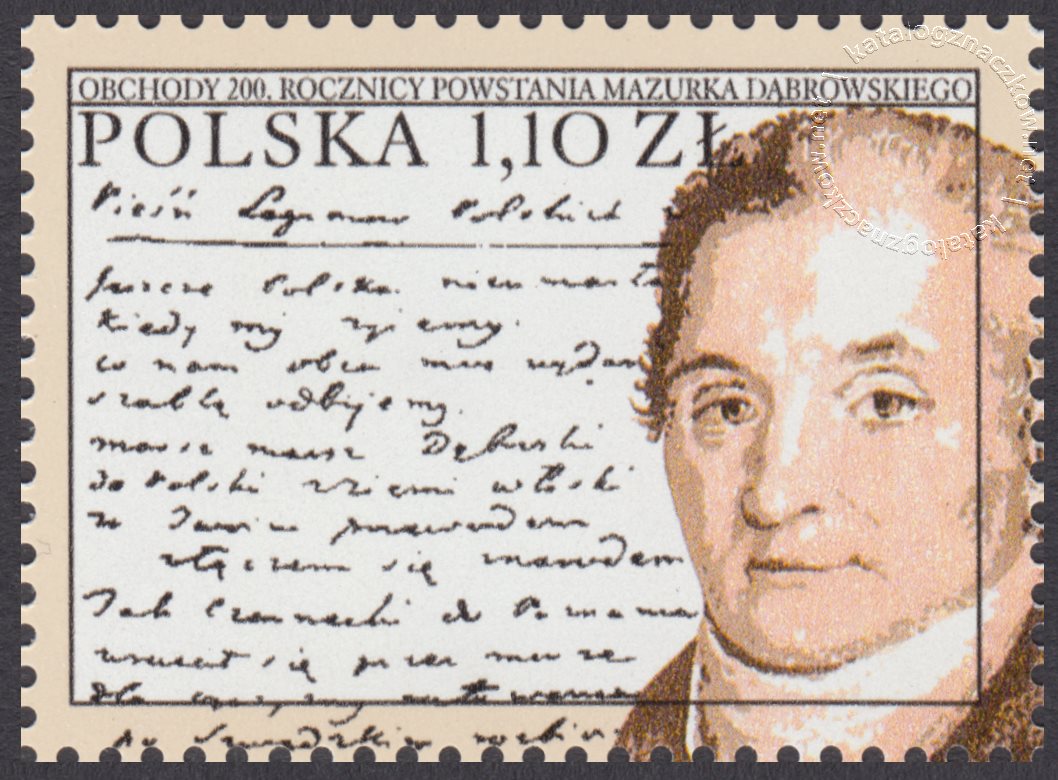 OBCHODY 200. ROCZNICY POWSTANIA MAZURKA DĄBROWSKIEGO
POLSKA 1,10 ZŁ
Pieśń Legionów Polskich
Jeszcze Polska nieumarła
kiedy my żyjemy.
co nam obca moc wydarł
szablą odbijemy.
marsz marsz Dąbrowski
do Polski z ziemi włoski
za Twoim przewodem
złączem się z narodem
Jak Czarnecki do Poznania
wracał się przez morze
dla
po szwedzkim
katalogznaczkow.net / katalogznaczkow.net /